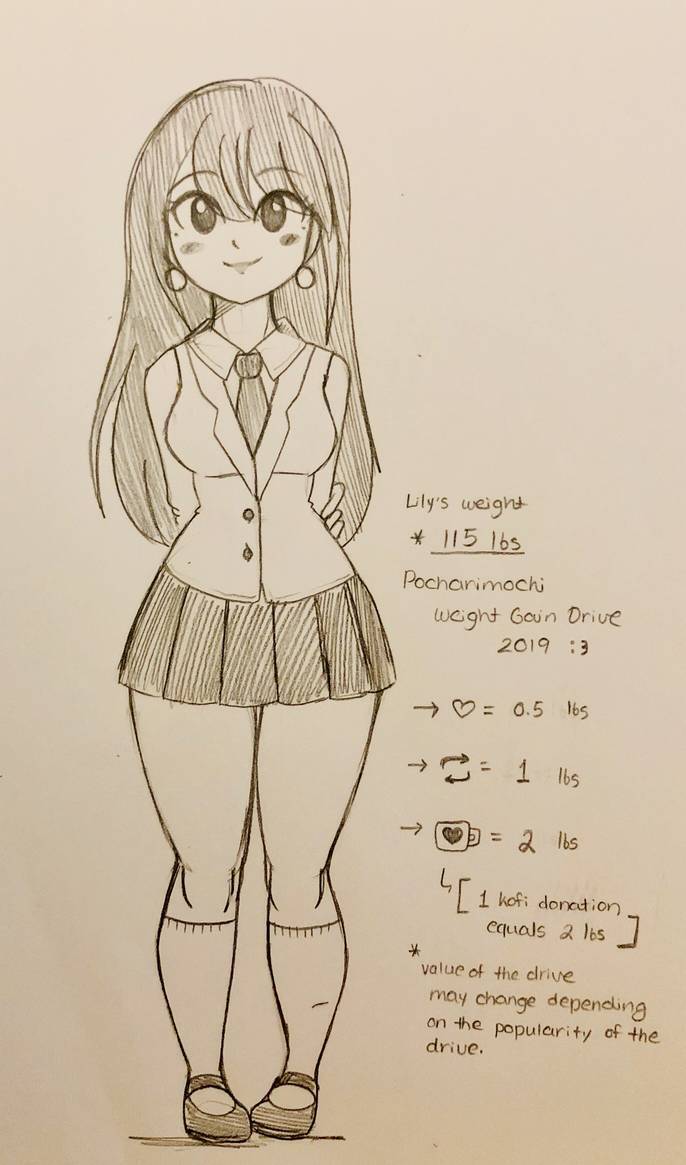 Lily's weight
* 115 lbs
Pocharimochi
weight Gain Drive
2019 :3
→ ♡ = 0.5 lbs
→ 🔁 = 1 lbs
→ = 2 lbs
↳ [ 1 kofi donation
equals 2 lbs ]
*
value of the drive
may change depending
on the popularity of the
drive.